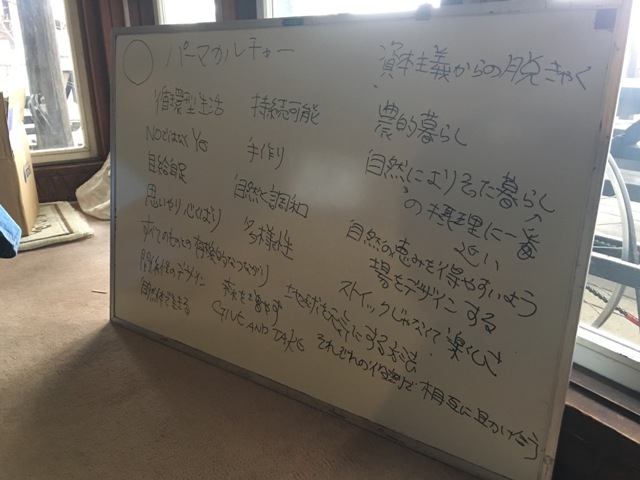 パーマカルチャー
資本主義からの脱きゃく
循環型生活 持続可能
農的暮らし
NOではなくYes 手作り
自然によりそった暮らし
の摂理に一番近い
自給自足 自然と調和
思いやり 心くばり 多様性
自然の恵みを得やすいよう
場をデザインする
すべてのものとの有機的なつながり
関係性のデザイン
ストイックじゃなくて楽しさ
自然体で生きる
地球を元気にする方法
GIVE AND TAKE それぞれの役割で相互に助け合う